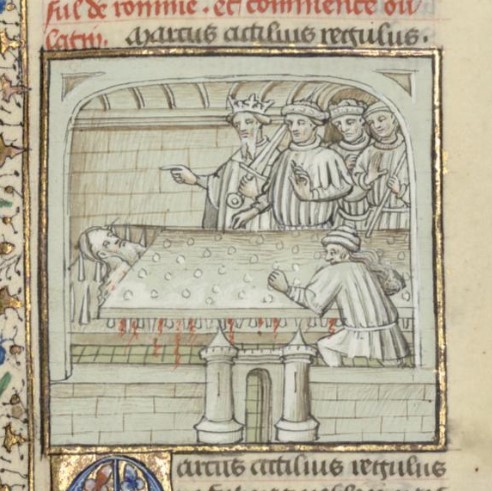 ful de romme. et commence ou
latin. Marcus actilius regulus.
arcus actilius regulus